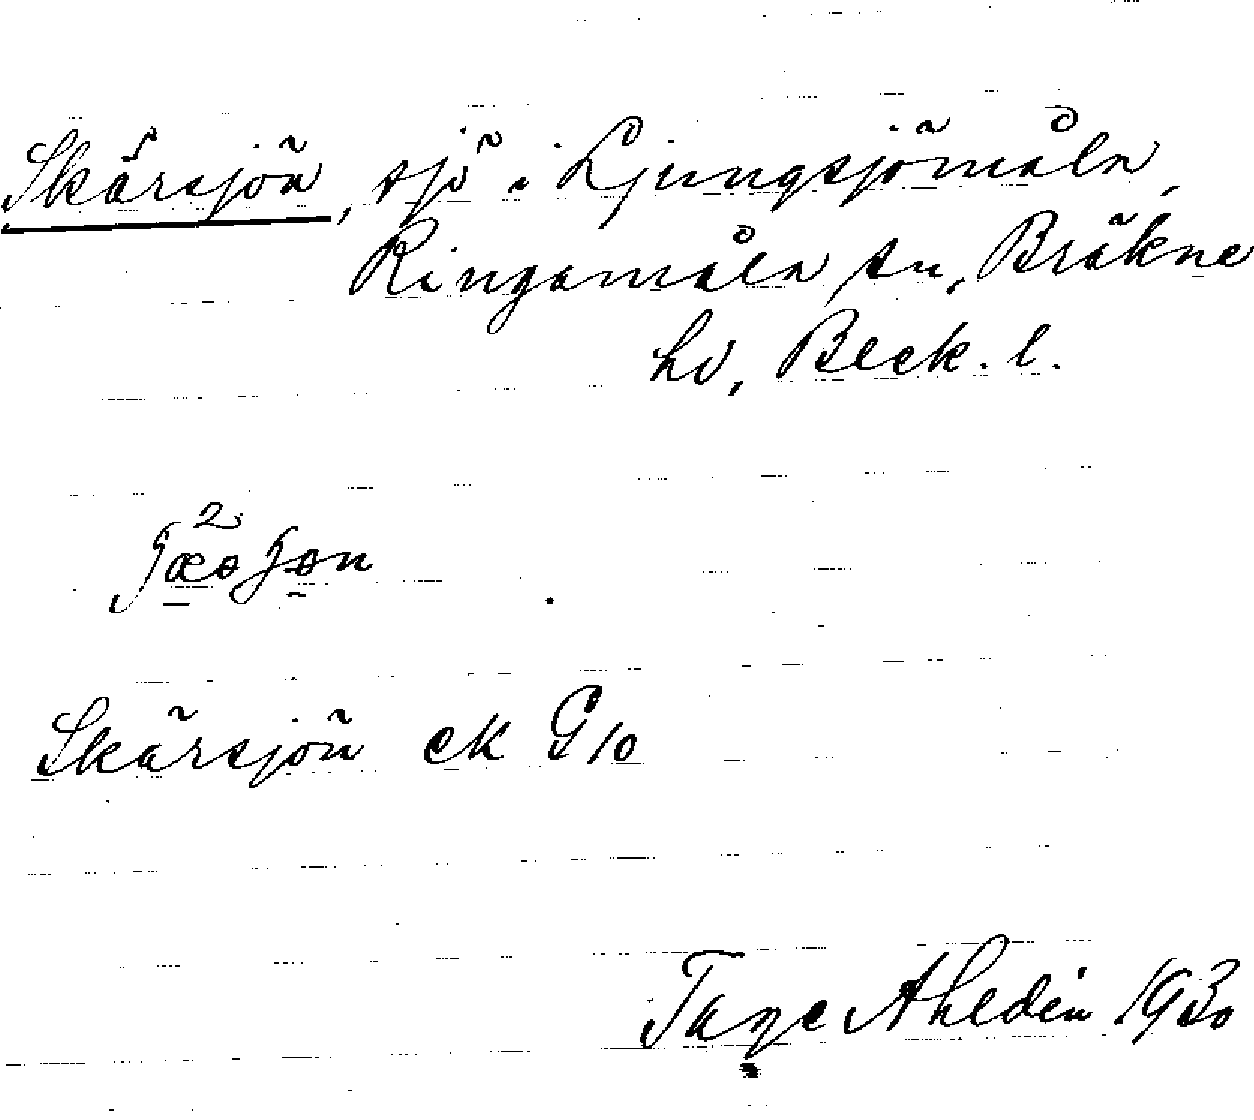 Skärsjön, sjö i Ljungsjömåla,
Ringamåla sn, Bräkne
hd, Bleck. l.
Skärsjön ek G 10
Tage Ahldin 1930